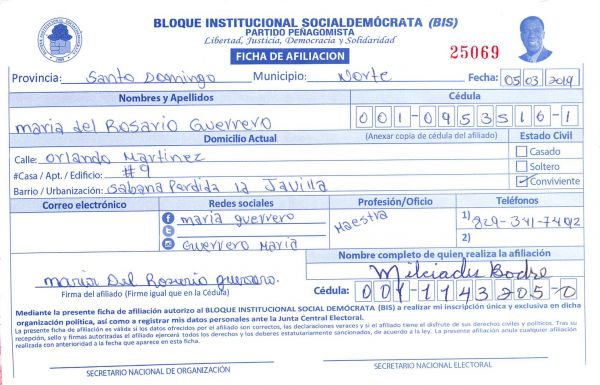 BLOQUE INSTITUCIONAL SOCIALDEMÓCRATA (BIS)
PARTIDO PEÑAGOMISTA
Libertad, Justicia, Democracia y Solidaridad
FICHA DE AFILIACION
25069
Provincia: Santo Domingo Municipio: Norte Fecha: 05 03 2019
Nombres y Apellidos Cédula
maria del Rosario Guerrero 001-0953516-1
Domicilio Actual (Anexar copia de cédula del afiliado) Estado Civil
Calle: Orlando Martinez Casado
#Casa / Apt. / Edificio: #9 Soltero
Barrio / Urbanización: Sabana Perdida la Javilla Conviviente
Correo electrónico Redes sociales Profesión/Oficio Teléfonos
maria guerrero Maestra 1) 829-341-7492
2)
Guerrero Maria
Nombre completo de quien realiza la afiliación
Maria Del Rosario guerrero. Milciades Bodre
Firma del afiliado (Firme igual que en la Cédula) Cédula: 001-1143205-0
Mediante la presente ficha de afiliación autorizo al BLOQUE INSTITUCIONAL SOCIAL DEMÓCRATA (BIS) a realizar mi inscripción única y exclusiva en dicha
organización política, así como a registrar mis datos personales ante la Junta Central Electoral.
La presente ficha de afiliación es válida si los datos ofrecidos por el afiliado son correctos, las declaraciones veraces y si el afiliado tiene el disfrute de sus derechos civiles y políticos. Tras su
recepción, sello y firmas autorizadas el afiliado ejercerá todos los derechos y los deberes estatutariamente sancionados, de acuerdo a la ley. La presente afiliación anula cualquier afiliación
realizada con anterioridad a la fecha que aparece en esta ficha.
SECRETARIO NACIONAL DE ORGANIZACIÓN SECRETARIO NACIONAL ELECTORAL